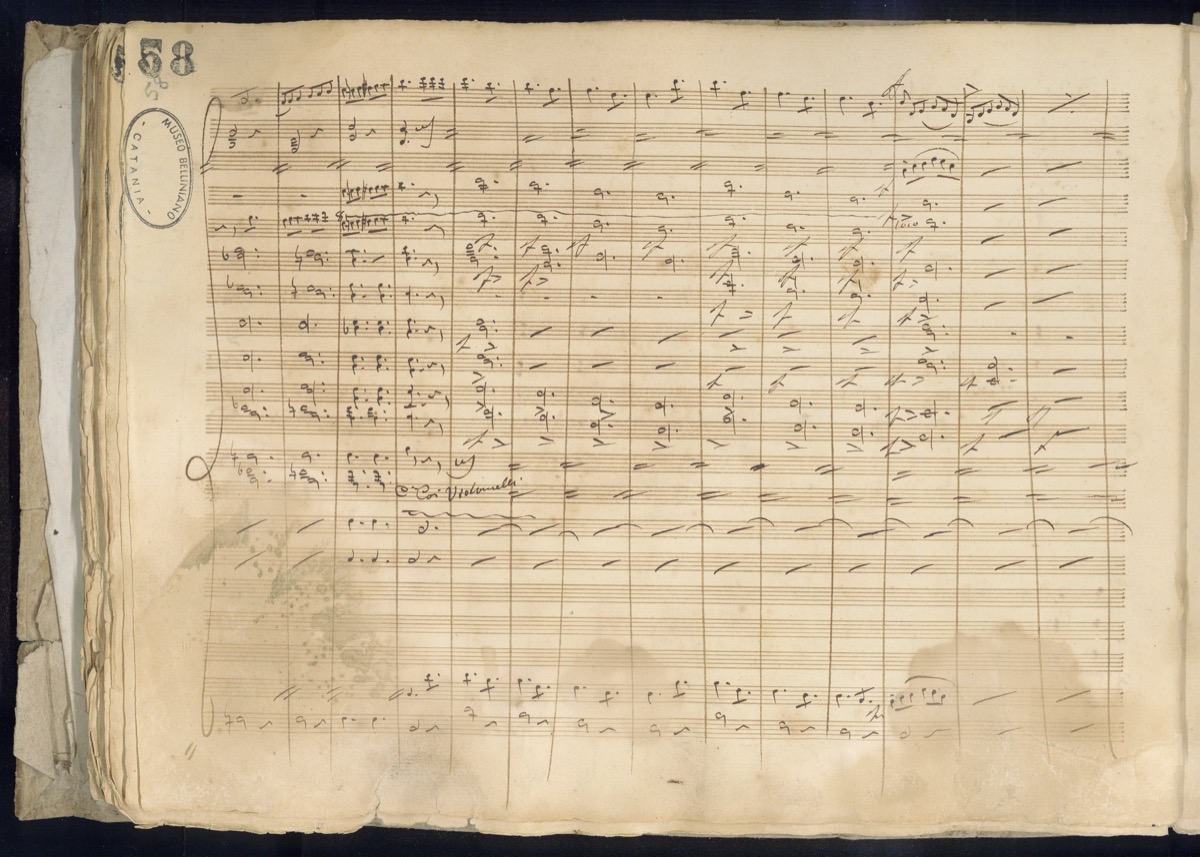 58
58
MUSEO BELLINIANO
CATANIA -
loco
Coi Violoncelli